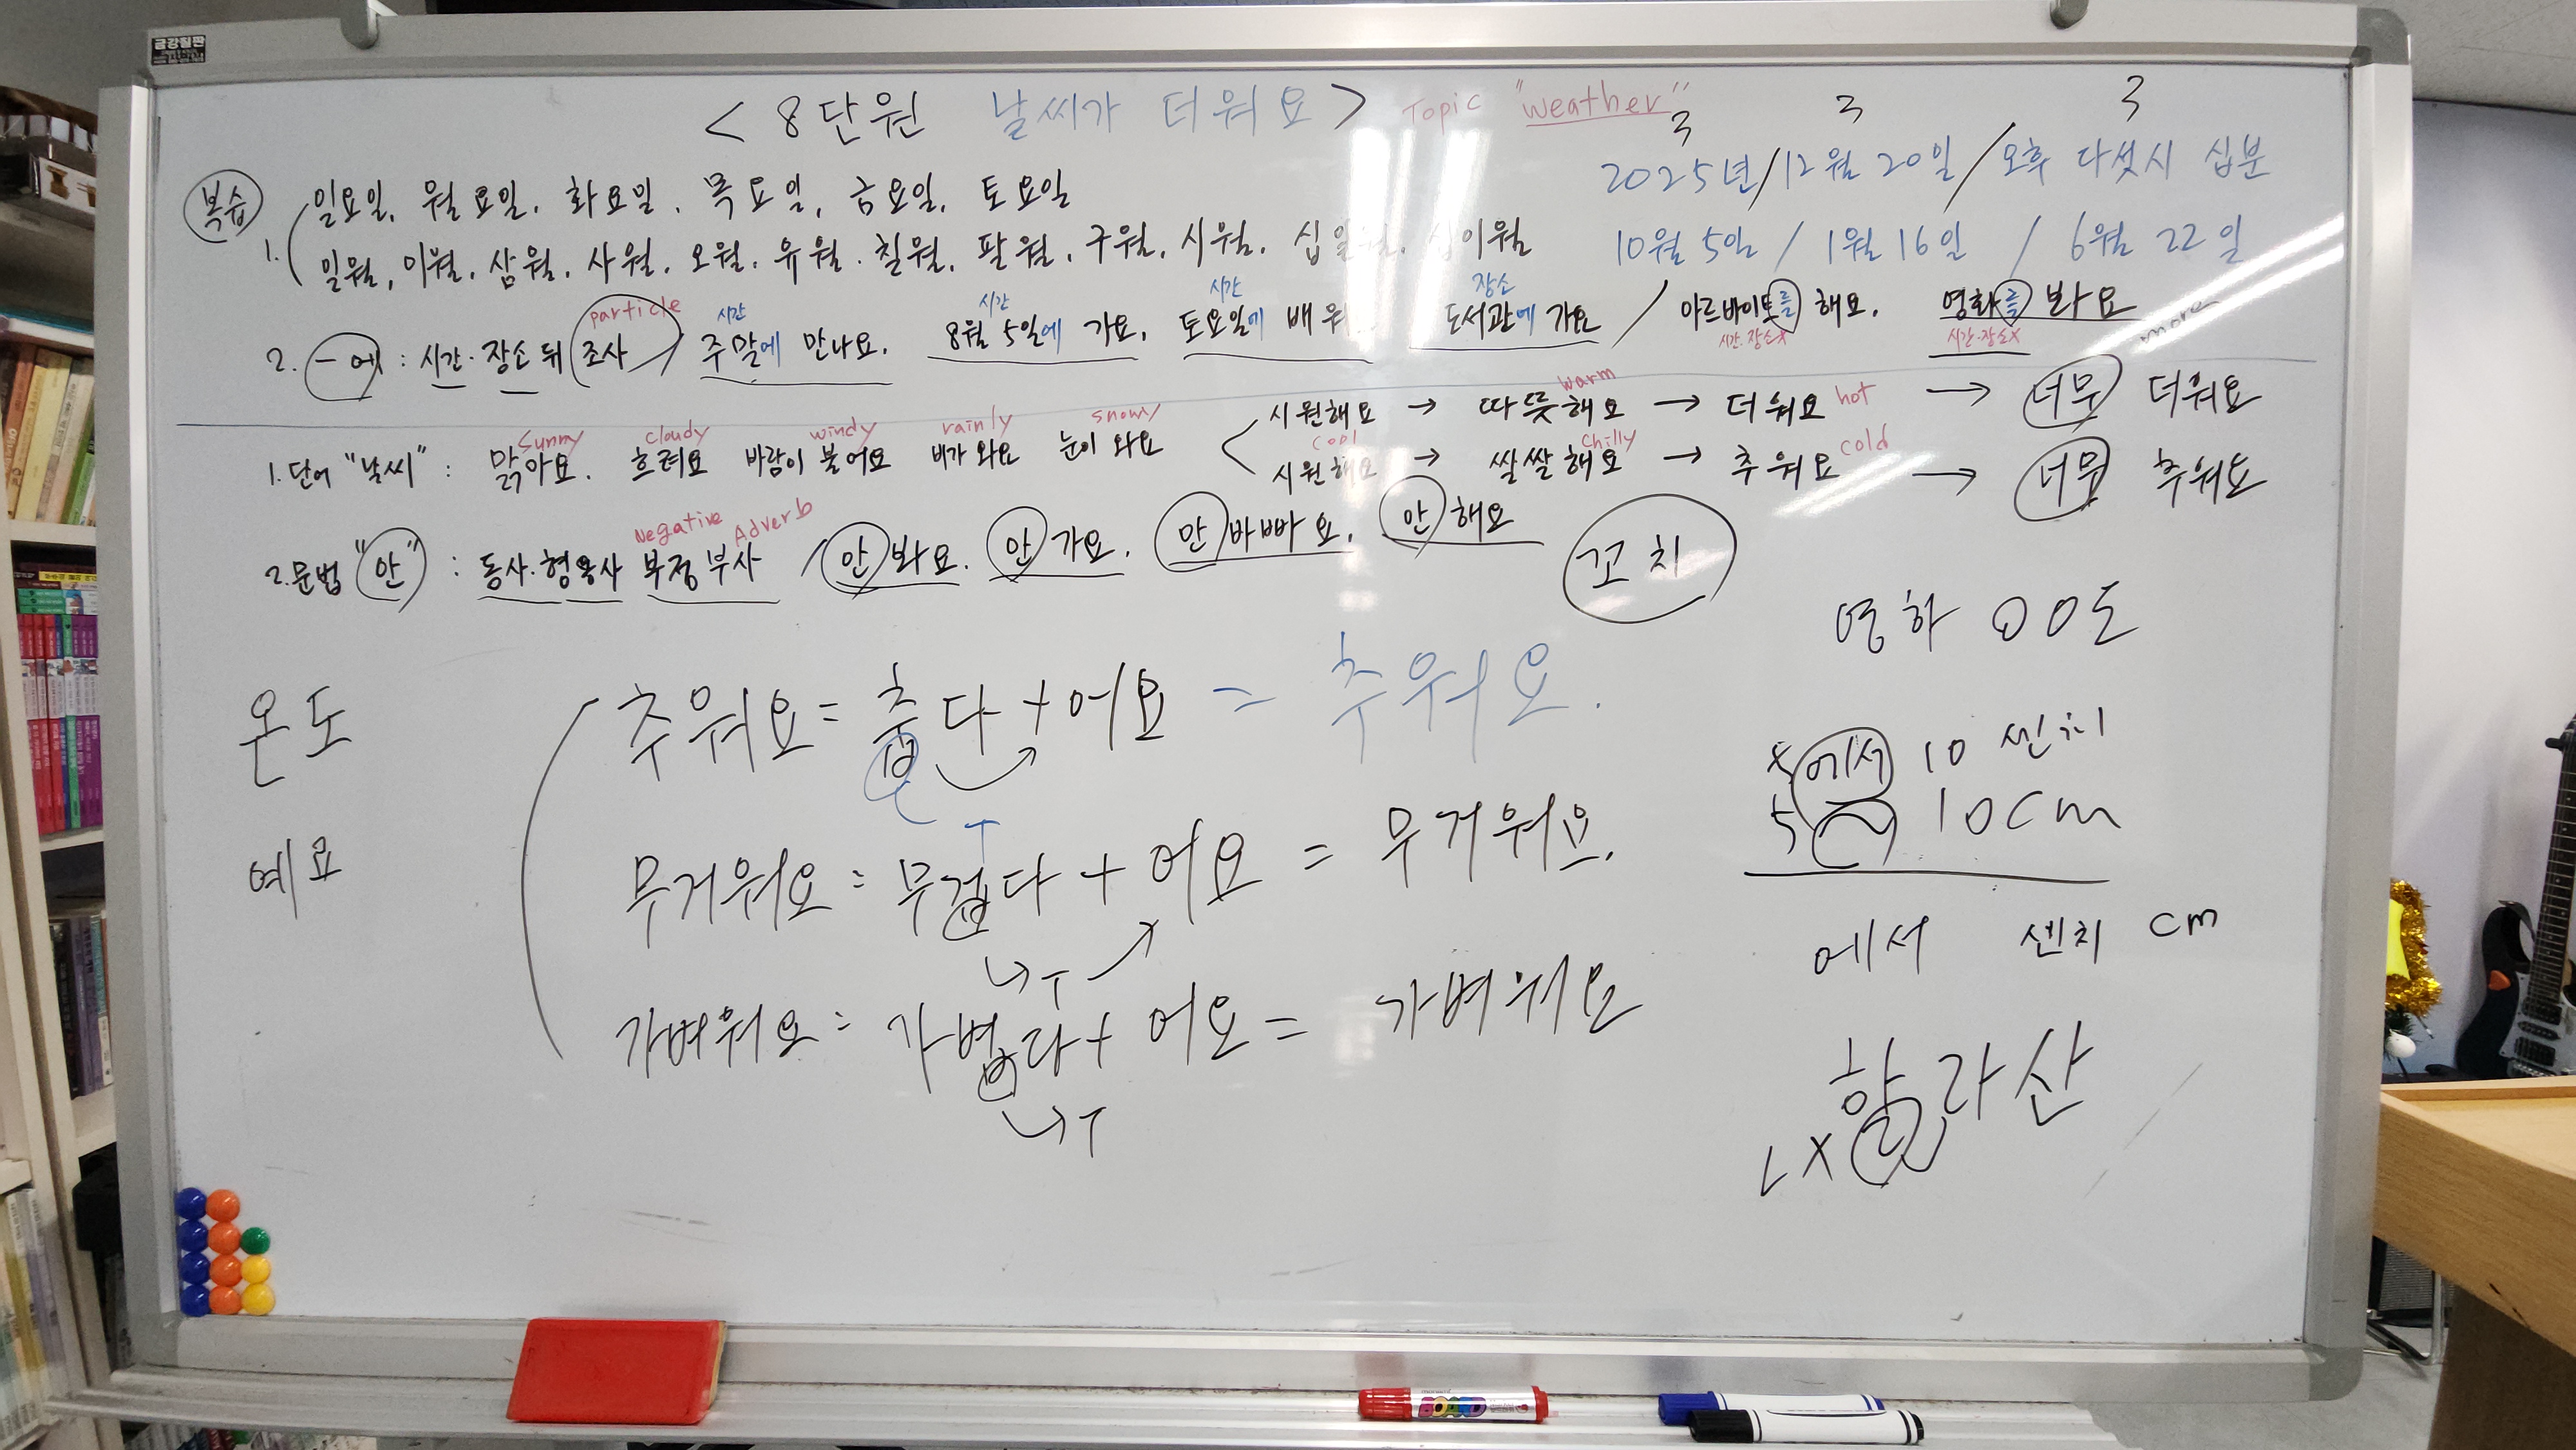 금강칠판
< 8단원 날씨가 더워요 > Topic "weather"
3 3 3
2025년/12월 20일/오후 다섯시 십분
복습
1. 일요일, 월요일, 화요일, 목요일, 금요일, 토요일
일월, 이월, 삼월, 사월, 오월, 유월, 칠월, 팔월, 구월, 시월, 십일월, 십이월
10월 5일 / 1월 16일 / 6월 22일
particle 시간 시간 시간 장소
2. -에 : 시간·장소 뒤 조사 / 주말에 만나요. 8월 5일에 가요. 토요일에 배워 도서관에 가요 / 아르바이트를 해요. 영화를 봐요
시간·장소x 시간·장소x
more
sunny cloudy windy rainly snowy
1. 단어 "날씨" : 맑아요. 흐려요 바람이 불어요 비가 와요 눈이 와요
warm
시원해요 → 따뜻해요 → 더워요 hot → 너무 더워요
cool chilly
시원해요 → 쌀쌀해요 → 추워요 cold → 너무 추워요
Negative Adverb
2. 문법 "안" : 동사·형용사 부정 부사 / 안 봐요. 안 가요. 안 바빠요. 안 해요
꼬치
영하 00도
온도
예요
추워요 = 춥다 + 어요 = 추워요.
ㅂ
ㅜ
무거워요 = 무겁다 + 어요 = 무거워요.
↳ㅜ
가벼워요 = 가볍다 + 어요 = 가벼워요
↳ㅜ
5에서 10 센치
5~10cm
에서 센치 cm
할라산
ㄴX
BOARD